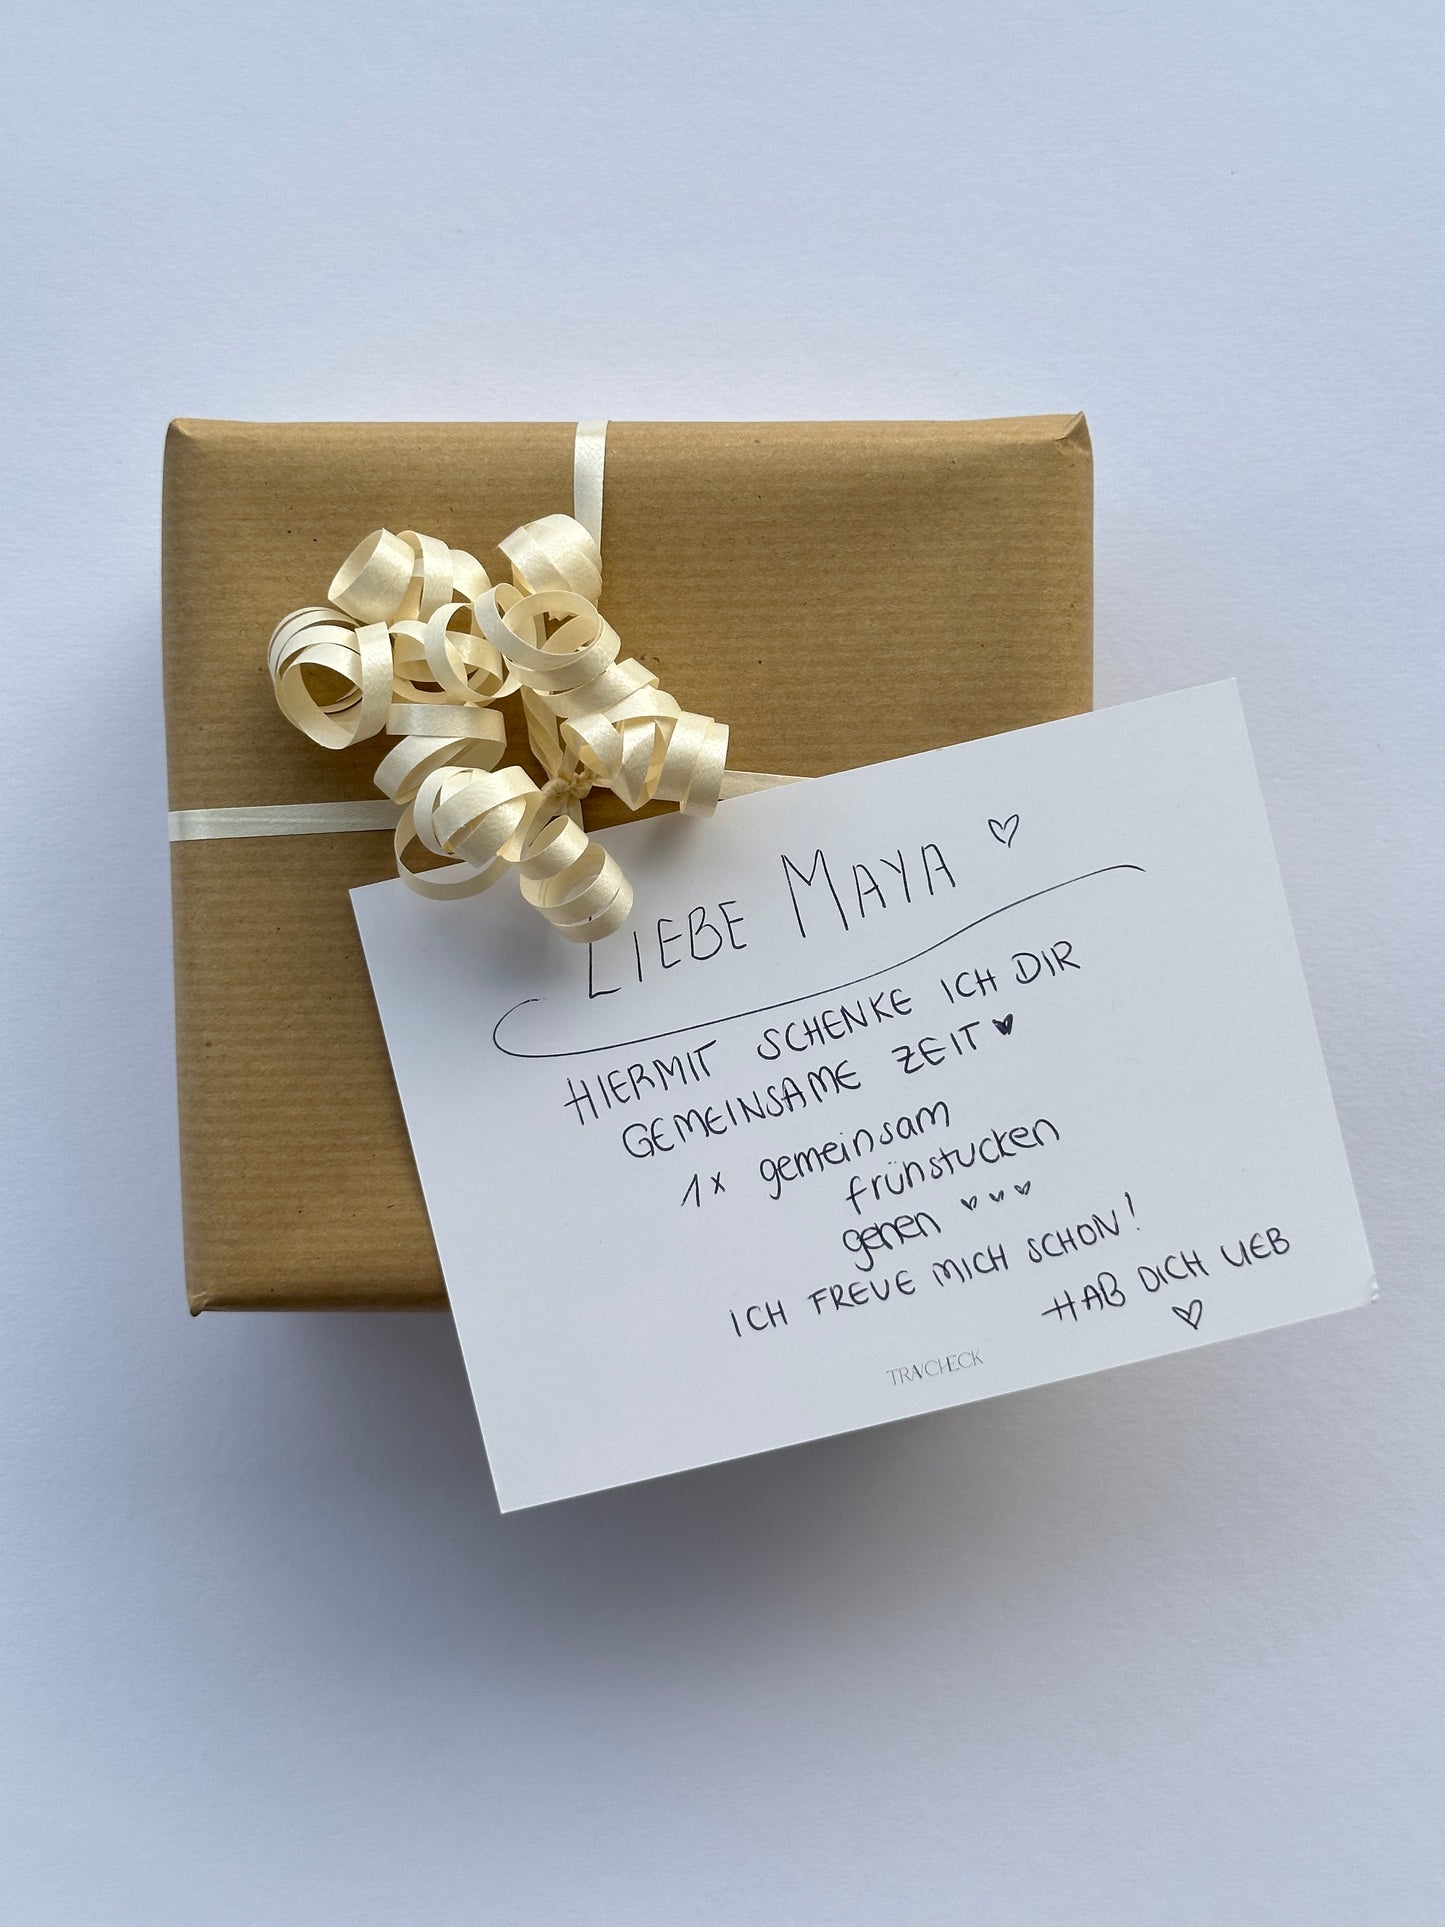 LIEBE MAYA ♡
HIERMIT SCHENKE ICH DIR
GEMEINSAME ZEIT ♥
1x gemeinsam
frühstucken
gehen ♥ ♥ ♥
ICH FREUE MICH SCHON!
HAB DICH LIEB
♡
TRAVCHECK